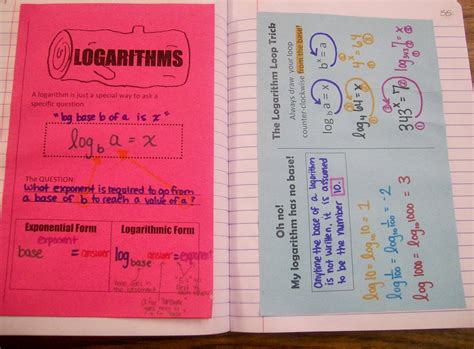 LOGARITHMS
A logarithm is just a special way to ask a
specific question
"log base b of a is x"
log_b a = x
The QUESTION:
What exponent is required to go from
a base of b to reach a value of a?
Exponential Form
base^exponent = answer
Logarithmic Form
log_base answer = exponent
base goes in
the basement
55
The Logarithm Loop Trick
Always draw your loop
counter-clockwise from the base!
log_b a = x b^x = a
log_4 64 = x 4^x = 64
343^x = 7
Oh no!
My logarithm has no base!
Anytime the base of a logarithm
is not written, it is assumed
to be the number 10.
log 10 = log_10 10 = 1
log 1/100 = log_10 1/100 = -2
log 1000 = log_10 1000 = 3